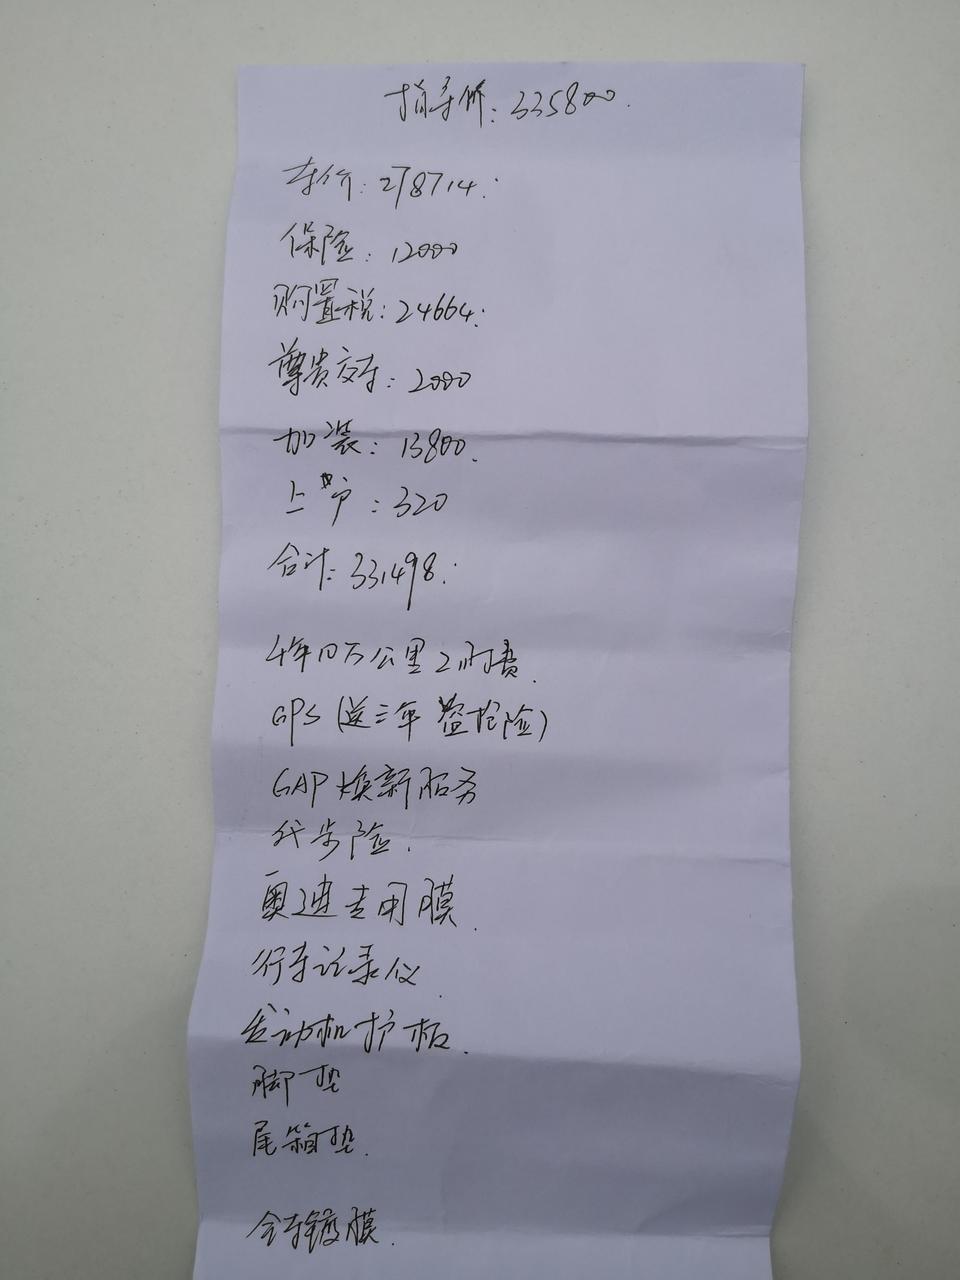 指导价: 335800.
车价: 278714.
保险: 12000
购置税: 24664.
尊贵交车: 2000
加装: 13800.
上户: 320
合计: 331498.
4年10万公里工时费.
GPS (送三年盗抢险)
GAP焕新服务
代步险.
奥迪专用膜.
行车记录仪.
发动机护板.
脚垫
尾箱垫.
全车镀膜.